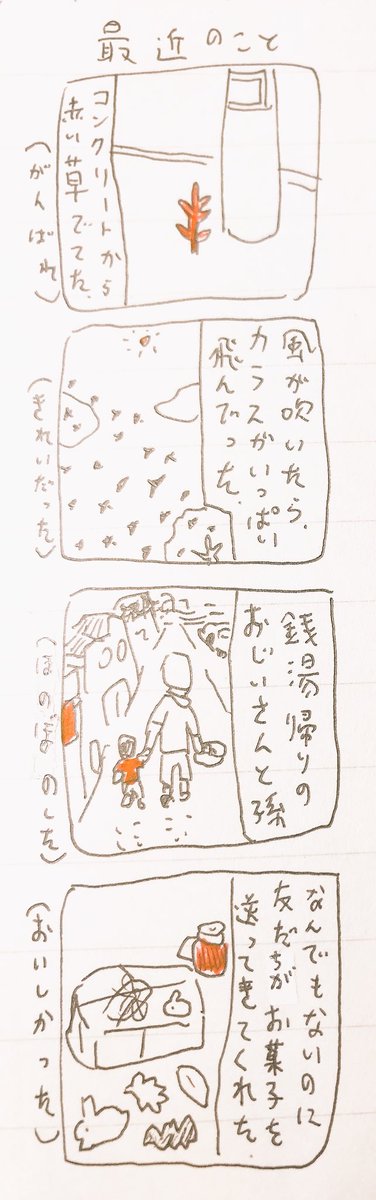 最近のこと
コンクリートから
赤い草でてた.
(がんばれ)
風が吹いたら.
カラスがいっぱい
飛んでった.
(きれいだった)
銭湯帰りの
おじいさんと孫
(ほのぼのした)
なんでもないのに
友だちがお菓子を
送ってきてくれた
(おいしかった)